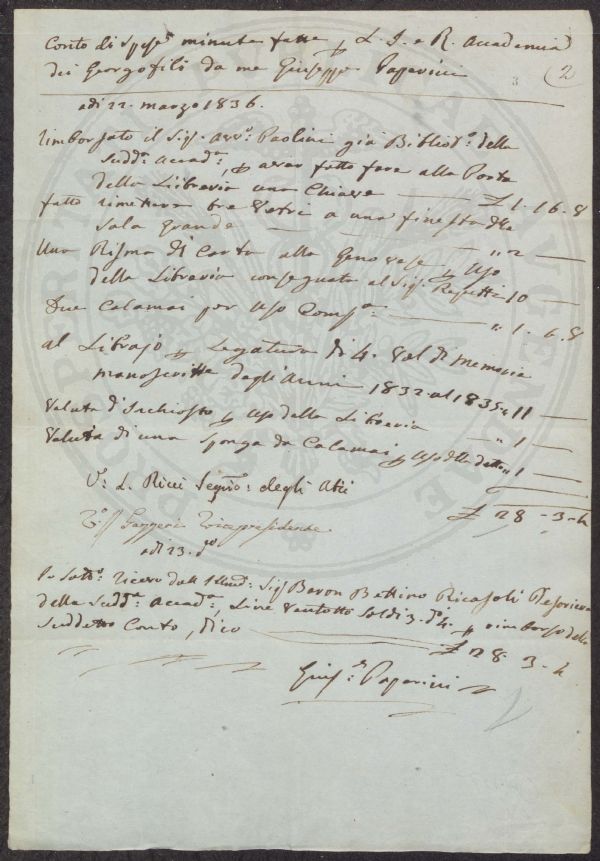 Conto di Spese minute fatte p L. I. e R. Accademia
dei Georgofili da me Giuseppe Paperini
3 (2)
adi 22. marzo 1836.
Rimborsato il Sig. Avv.o Paolini già Bibliot.o della
Sudd.a Accad.a, p aver fatto fare alla Porta
della Libreria una Chiave £ 1. 16. 8
fatto rimettere tre Vetri a una finestra della
Sala grande " 2 —
Una Risma di Carta alla Genovese p uso
della Libreria consegnata al Sig. Repetti 10 —
Due Calamai per uso Comp.a " 1. 6. 8
al Librajo p Legatura di 4. Vol. di Memorie
manoscritte degli Anni 1832 al 1835 " 11 —
Valuta d'Inchiostro p uso della Libreria " 1 —
Valuta di una Sponga da Calamai p uso della detta " 1 —
£ 28 - 3 - 4
V.o L. Ricci Segret.o degli Atti
V.o Gazzeri Vicepresidente
adi 23. d.o
Io Sott.o ricevo dall' Illmo Sig. Baron Bettino Ricasoli Tesoriere
della Sudd.a Accad.a, Lire Ventotto Soldi 3. d. 4. p rimborso dello
Suddetto Conto, dico £ 28. 3 - 4
Gius.e Paperini
PROSPERITATI PUBLICAE AUGENDAE